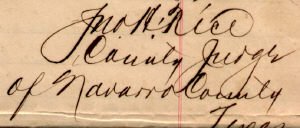 Jno H. Rice
County Judge
of Navarro County
Texas